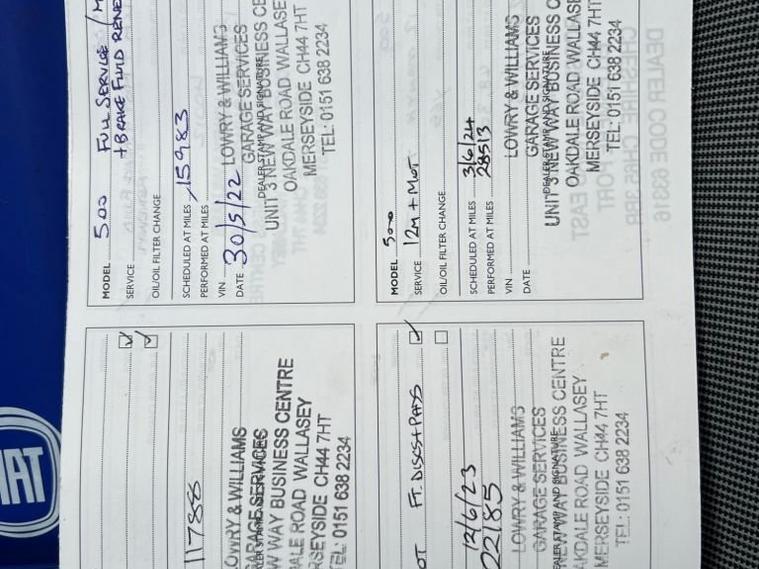 IAT
11788
LOWRY & WILLIAMS
GARAGE SERVICES
DEALER STAMP AND SIGNATURE
W WAY BUSINESS CENTRE
DALE ROAD WALLASEY
MERSEYSIDE CH44 7HT
TEL: 0151 638 2234
MODEL 500 FULL SERVICE / M
SERVICE + BRAKE FLUID RENE
OIL/OIL FILTER CHANGE
SCHEDULED AT MILES 15983
PERFORMED AT MILES
VIN
DATE 30/5/22
LOWRY & WILLIAMS
GARAGE SERVICES
DEALER STAMP AND SIGNATURE
UNIT 3 NEW WAY BUSINESS CE
OAKDALE ROAD WALLASE
MERSEYSIDE CH44 7HT
TEL: 0151 638 2234
OT FT. DISCS + PADS
12/6/23
22185
LOWRY & WILLIAMS
GARAGE SERVICES
DEALER STAMP AND SIGNATURE
NEW WAY BUSINESS CENTRE
AKDALE ROAD WALLASEY
MERSEYSIDE CH44 7HT
TEL: 0151 638 2234
MODEL 500
SERVICE 12M + MOT
OIL/OIL FILTER CHANGE
SCHEDULED AT MILES 3/6/24
PERFORMED AT MILES 28513
VIN
DATE
LOWRY & WILLIAMS
GARAGE SERVICES
DEALER STAMP AND SIGNATURE
UNIT 3 NEW WAY BUSINESS C
OAKDALE ROAD WALLASE
MERSEYSIDE CH44 7HT
TEL: 0151 638 2234